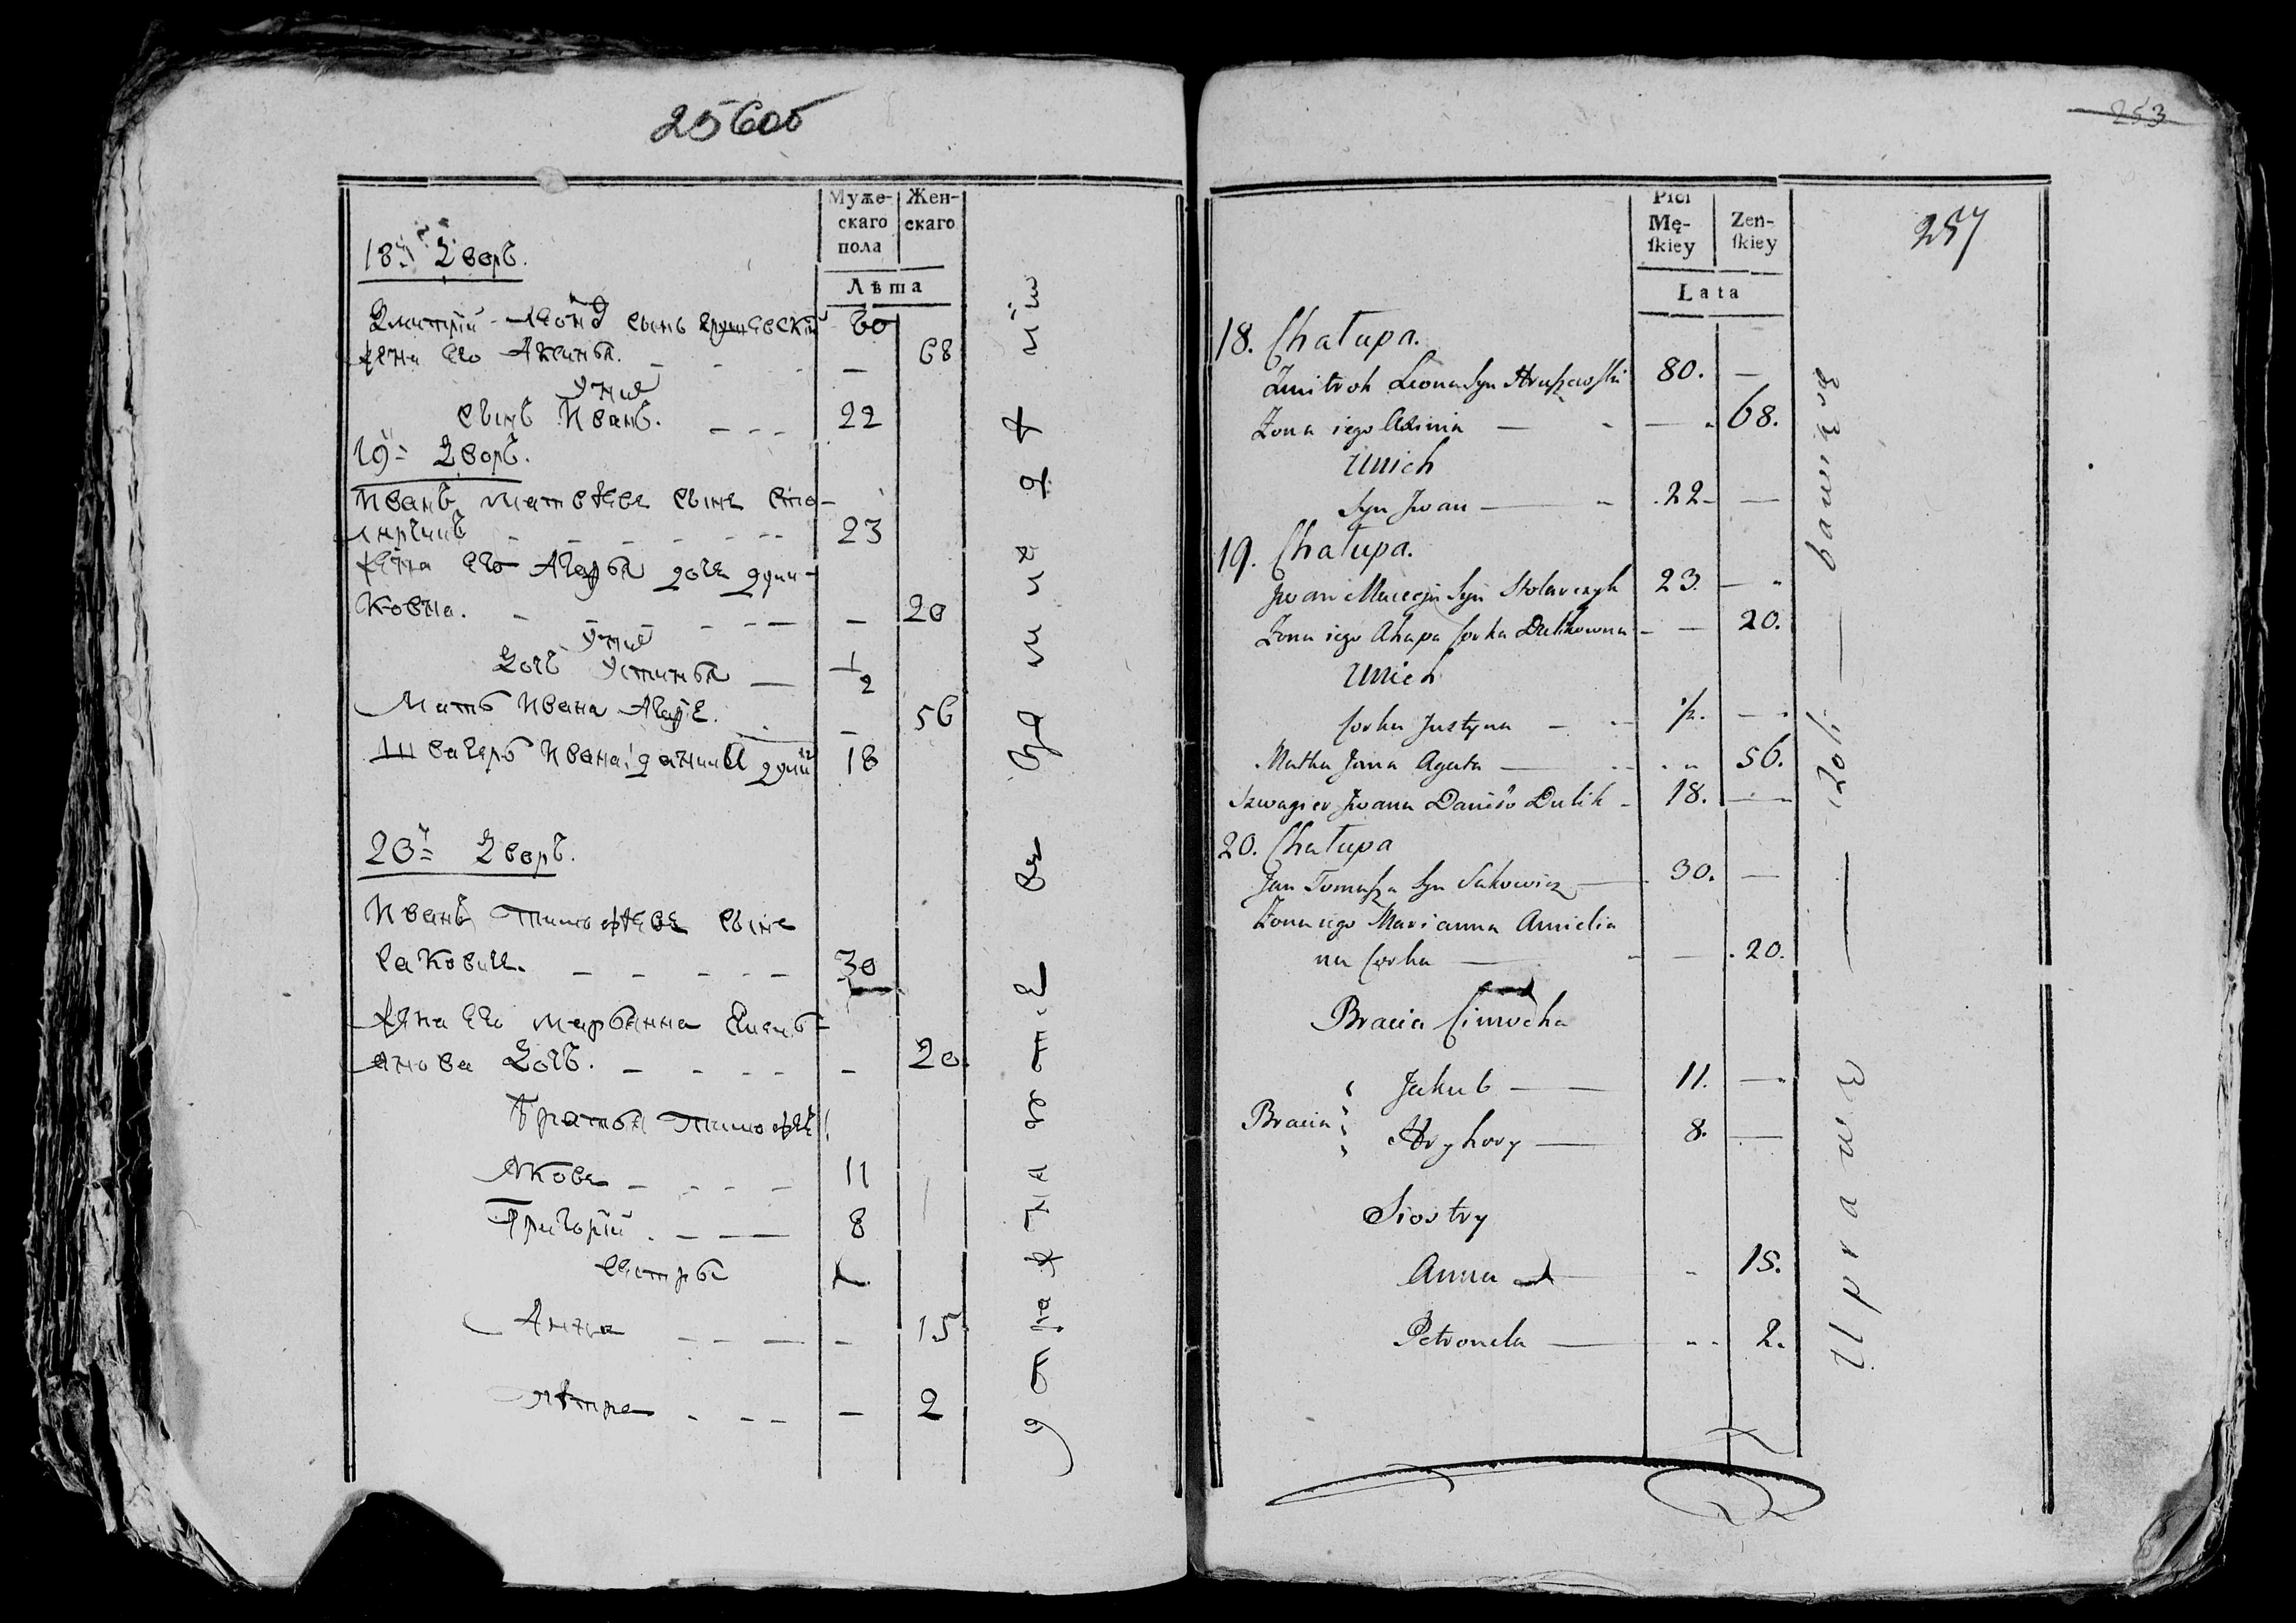 256об
Муже-
скаго
пола
Жен-
скаго
Лѣта
18й Дворъ.
Дмитрій Леона сынъ Грушевскій 80
жена его Аксинья. 68
У них
сынъ Иванъ. 22
19й Дворъ.
Иванъ матвѣевъ сынъ сто-
лярчикъ 23
жена его Агафья дочь дули-
ковна. 20
У них
Дочь Устинья 1/2
Мать Ивана Агафья. 56
Швагеръ Ивана данило дулик 18
20й Дворъ.
Иванъ тимофѣевъ сынъ
саковичъ. 30
жена его марьянна Емель-
янова Дочь. 20
Братья тимофея
Яковъ 11
Григорій 8
сестры
Анна 15
петра 2
253
257
Płci
Mę-
ſkiey
Zeń-
ſkiey
Lata
18. Chałupa.
Zmitrok Leona Syn Hruszewski 80.
Żona iego Axinia 68.
U nich
Syn Jwan 22
19. Chałupa.
Jwan Macieja Syn Stolarczyk 23.
Żona iego Ahapa Corka Dulikowna 20.
U nich
Corka Justyna 1/2.
Matka Jwana Agata 56.
Szwagier Jwana Daniło Dulik 18.
20. Chałupa
Jan Tomaſza Syn Sakowicz 30.
Żona iego Marianna Amielia
na Corka 20.
Bracia Cimocha
Jakub 11.
Bracia
Hryhory 8.
Siostry
Anna 15.
Petronela 2.